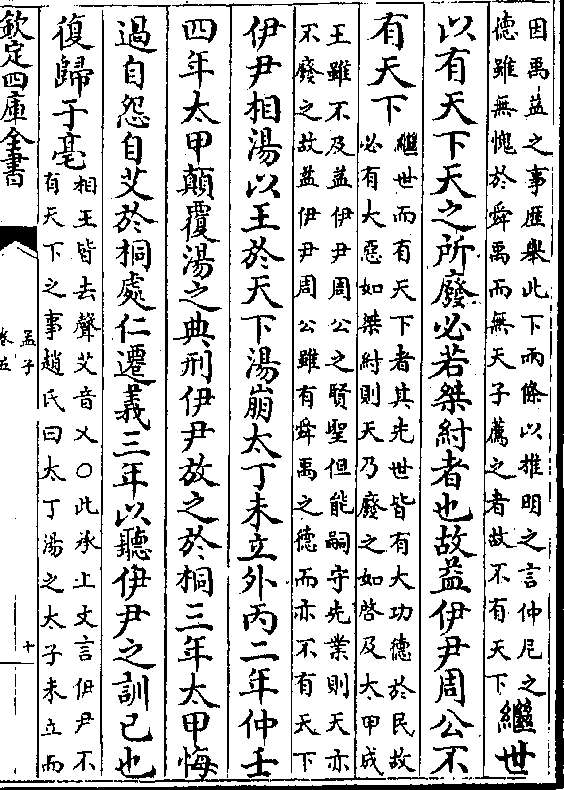 因禹益之事歷舉此下兩條以推明之言仲尼之
德雖無愧於舜禹而無天子薦之者故不有天下
繼世
以有天下天之所廢必若桀紂者也故益伊尹周公不
有天下
繼世而有天下者其先世皆有大功德於民故
必有大惡如桀紂則天乃廢之如啓及太甲成
王雖不及益伊尹周公之賢聖但能嗣守先業則天亦
不廢之故益伊尹周公雖有舜禹之德而亦不有天下
伊尹相湯以王於天下湯崩太丁未立外丙二年仲壬
四年太甲顛覆湯之典刑伊尹放之於桐三年太甲悔
過自怨自艾於桐處仁遷義三年以聽伊尹之訓己也
復歸于亳
相王皆去聲艾音乂○此承上文言伊尹不
有天下之事趙氏曰太丁湯之太子未立而
欽定四庫全書
孟子
卷五
十